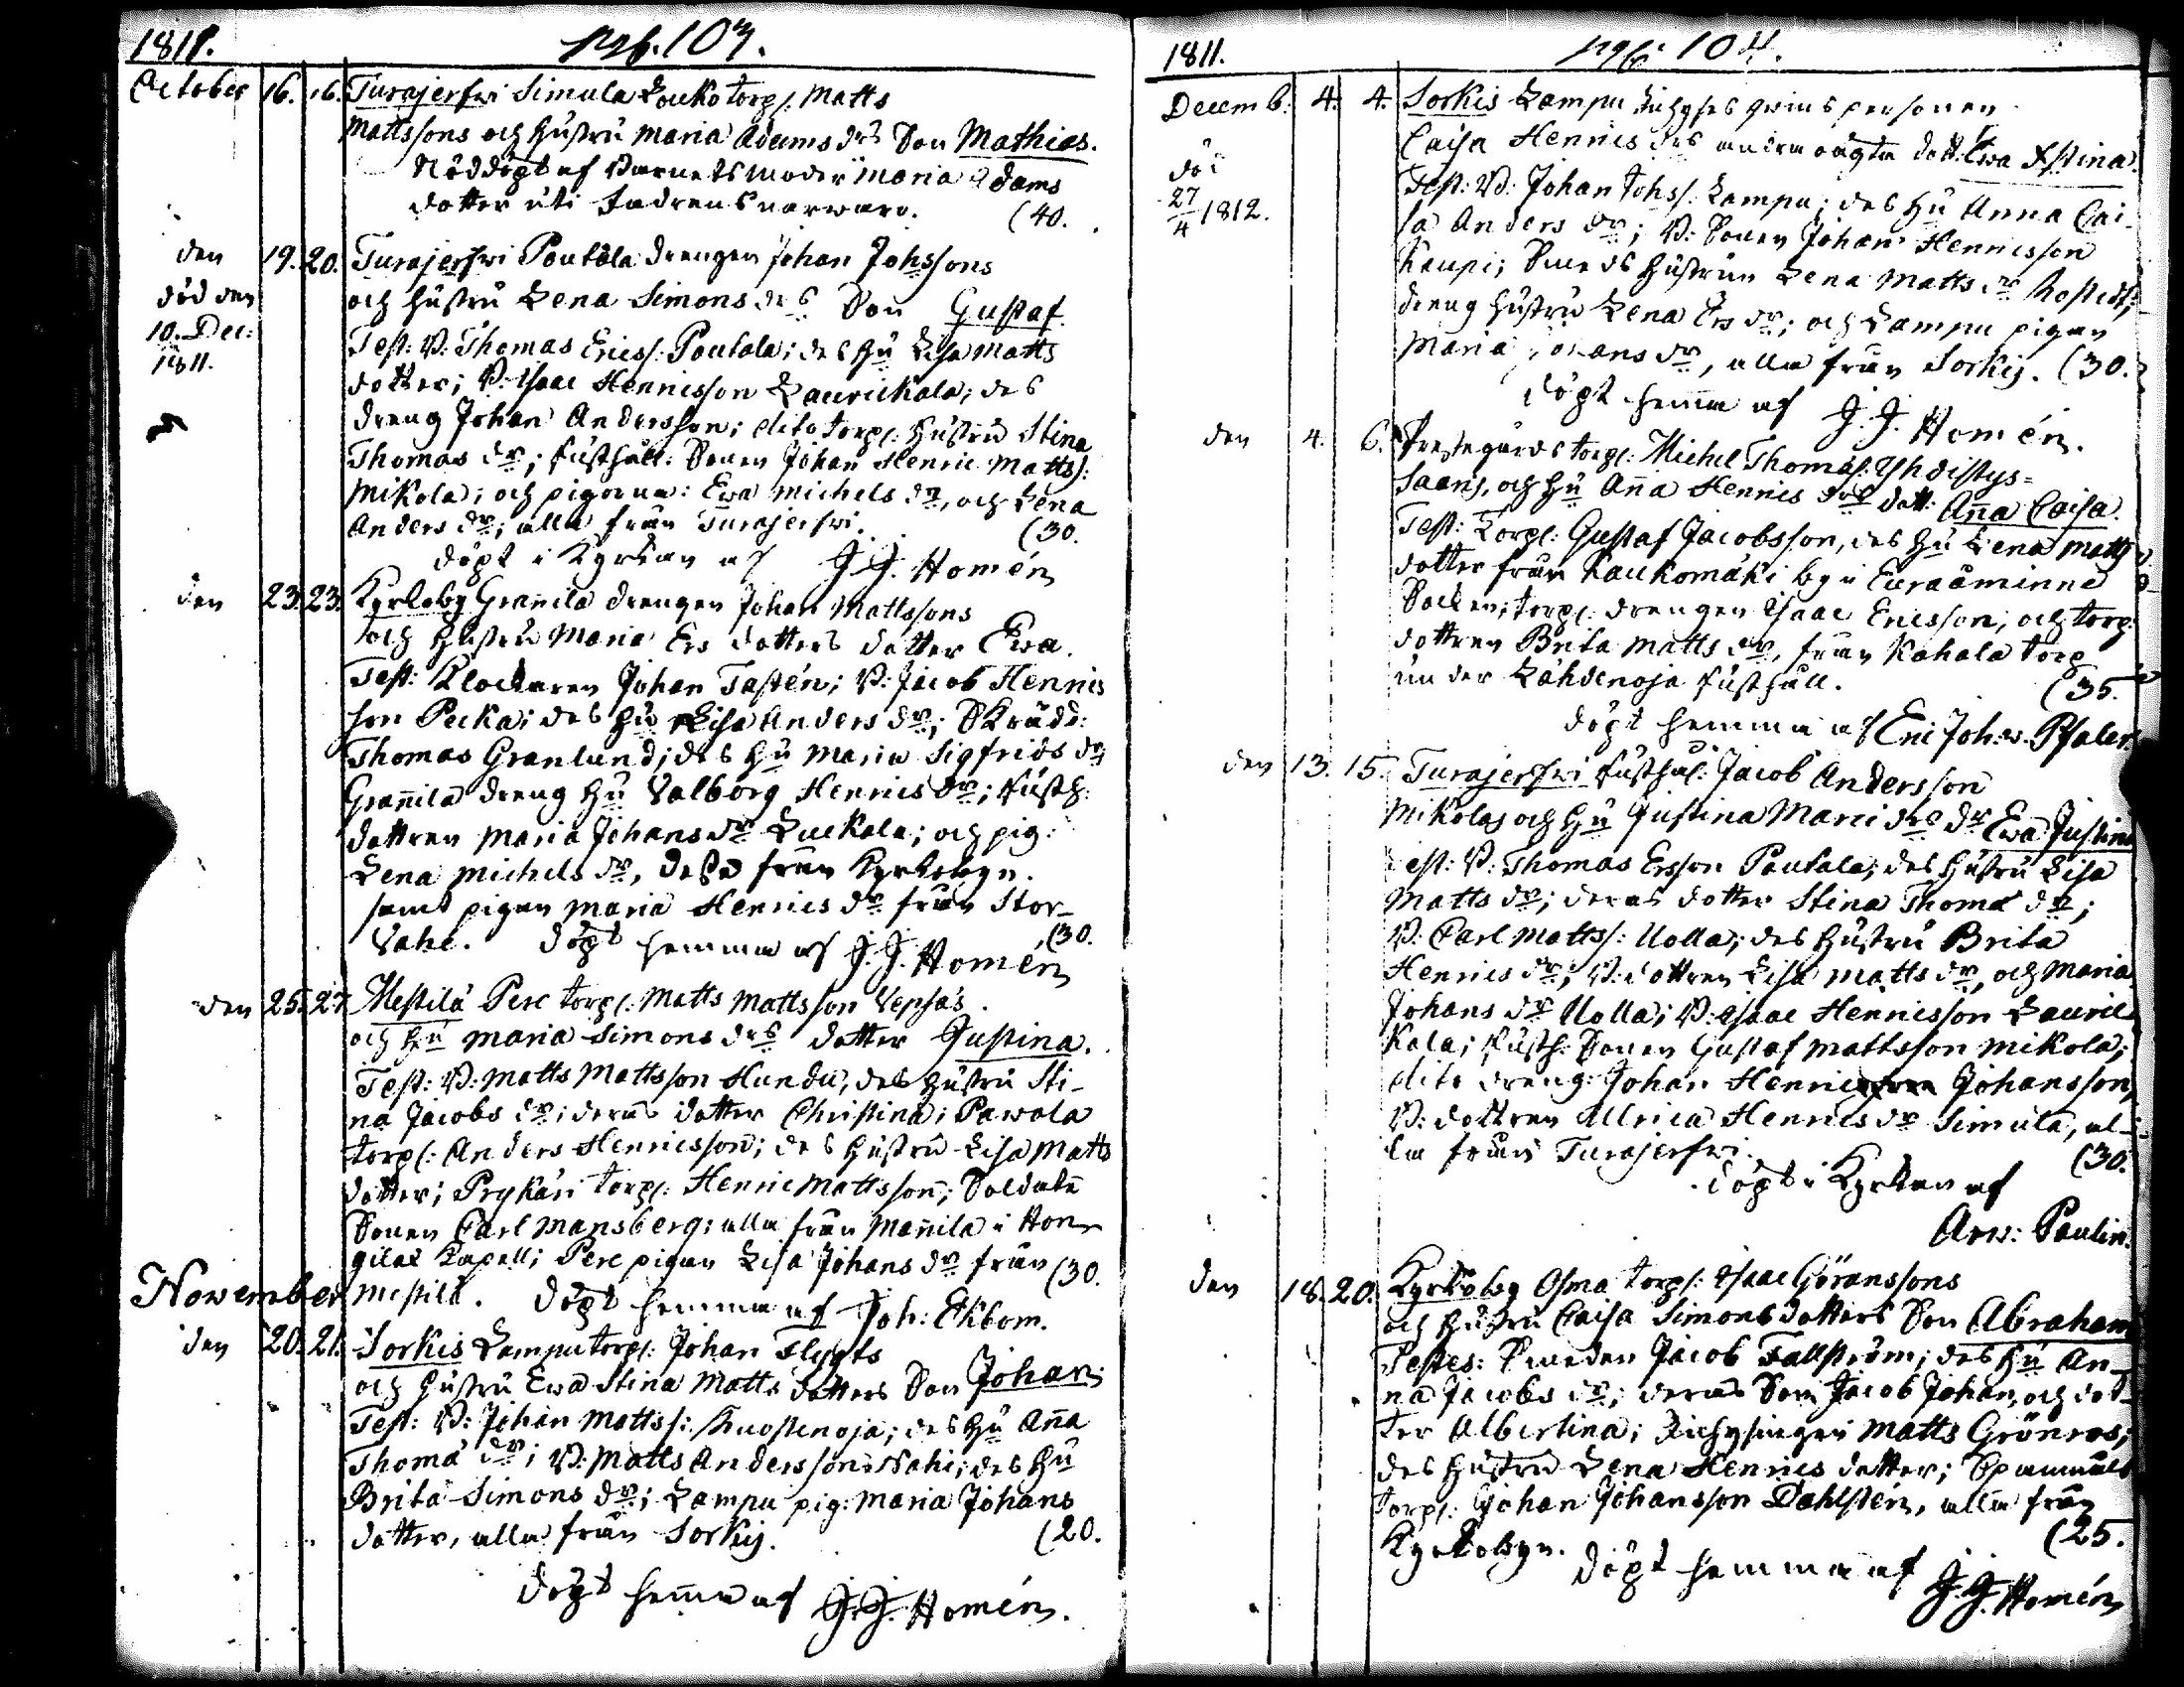 1811. pag. 103.
October 16. 16. Turajerfwi Simula Louko torp: Matts
Mattssons och hustru Maria Adams drs Son Mathias.
Nöddöpt af Barnets Moder Maria Adams
dotter uti Fadrens närwaro. (40.
den 19. 20. Turajerfwi Pountola drengen Johan Johssons
död den och hustru Lena Simons drs Son Gustaf.
10. Dec: Test: B: Thomas Erics: Poutala; des hu Lisa Matts
1811. dotter; B: Isaac Henricsson Laurickala; des
dreng Johan Andersson; dito torp: hustru Stina
Thomas dr; Rusthåll: Sonen Johan Henric Matts:
Mikola; och pigorna: Ewa Michels dr, och Lena
Anders dr; alla från Turajerfwi. (30.
döpt i Kyrkan af J. J. Homén
den 23. 23. Kyrkoby Grannila drengen Johan Mattssons
och hustru Maria Ers dotters dotter Ewa.
Test: Klockaren Johan Tastén; B: Jacob Henrics
son Pecka; des hu Lisa Anders dr; Skrädd:
Thomas Granlund; des hu Maria Sigfrids dr
Grannila dreng hu Valborg Henrics dr; Rusth:
dottren Maria Johans dr Luckala; och pig:
Lena Michels dr, dessa från Kyrkobyn.
samt pigan Maria Henrics dr från Stor-
Vahe. döpt hemma af J. J. Homén (30.
den 25. 27. Mestilä Pere torp: Matts Mattsson Vepsäs
och hu Maria Simons drs dotter Justina.
Test: B: Matts Mattsson Hundu, des hustru Sti-
na Jacobs dr; deras dotter Christina; Pawola
torp: Anders Henricsson; des hustru Lisa Matts
dotter; Prykäri torp: Henric Mattsson; Soldats
Sonen Carl Mansberg; alla från Mannila i Hon-
gilax Kapell; Pere pigan Lisa Johans dr från (30.
Mestilä. döpt hemma af Joh: Ekbom.
November
den 20. 21. Sorkis Lampu torp: Johan Flygts
och hustru Ewa Stina Matts dotters Son Johan
Test: B: Johan Matts: Knostenoja; des hu Anna
Thomæ dr; B: Matts Andersson Nahi; des hu
Brita Simons dr; Lampu pig: Maria Johans
dotter, alla från Sorkis. (20.
döpt hemma af J. J. Homén.
1811. pag: 104.
Decemb: 4. 4. Sorkis Lampu Inhyses qwinspersonen
Caisa Henrics drs andra oägta dott: Ewa Stina.
dö: Test: B: Johan Johs: Lampu; des hu Anna Cai-
27/4 1812. sa Anders dr; B: Sonen Johan Henricsson
Kaupi; Smeds hustrun Lena Matts dr
dreng hustru Lena Ers dr; och Lampu pigan
Maria Johans dr, alla från Sorkis. (30.
döpt hemma af J. J. Homén.
den 4. 6. Prestegårds torp: Michel Thomas: Yhdistys=
Saaris, och hu Anna Henrics drs dott: Anna Caisa.
Test: Torp: Gustaf Jacobsson, des hu Lena Matts
dotter från Kaukomäki by i Euraåminne
Socken; torp: drengen Isaac Ericsson; och torp:
dottren Brita Matts dr, från Kahala torp
under Lähdenoja Rusthåll. (35.
döpt hemma af Eric Joh: v. Pfaler
den 13. 15. Turajerfwi Rusthål: Jacob Andersson
Mikolas och hu Justina Marci drs dr Ewa Justina
Test: B: Thomas Ersson Poutala; des hustru Lisa
Matts dr; deras dotter Stina Thomæ dr;
B: Carl Matts: Uolla; des hustru Brita
Henrics dr; B: dottren Lisa Matts dr, och Maria
Johans dr Uolla; B: Isaac Henricsson Lauric
kala; Rusth: Sonen Gustaf Mattsson Mikola;
dito dreng: Johan Johansson,
B: dottren Ullrica Henrics dr Simula, al-
la från Turajerfwi. (30.
döpt i Kyrkan af
Arw: Paulin.
den 18. 20. Kyrkoby Osma torp: Isaac Göranssons
och hustru Caisa Simons dotters Son Abraham
Testes: Smeden Jacob Fallström; des hu An-
na Jacobs dr; deras Son Jacob Johan, och dot-
ter Albertina; Inhysingen Matts Grönros;
des hustru Lena Henrics dotter;
torp: Johan Johansson Dahlstén, alla från
Kyrkobyn. (25.
döpt hemma af J. J. Homén